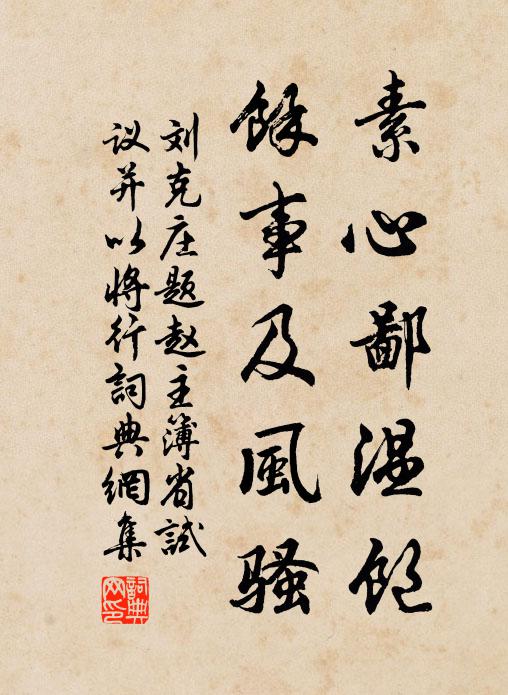 素心鄙温飽
餘事及風騷
刘克庄题赵主簿省試
议并以将行詞典網集
詞典网印